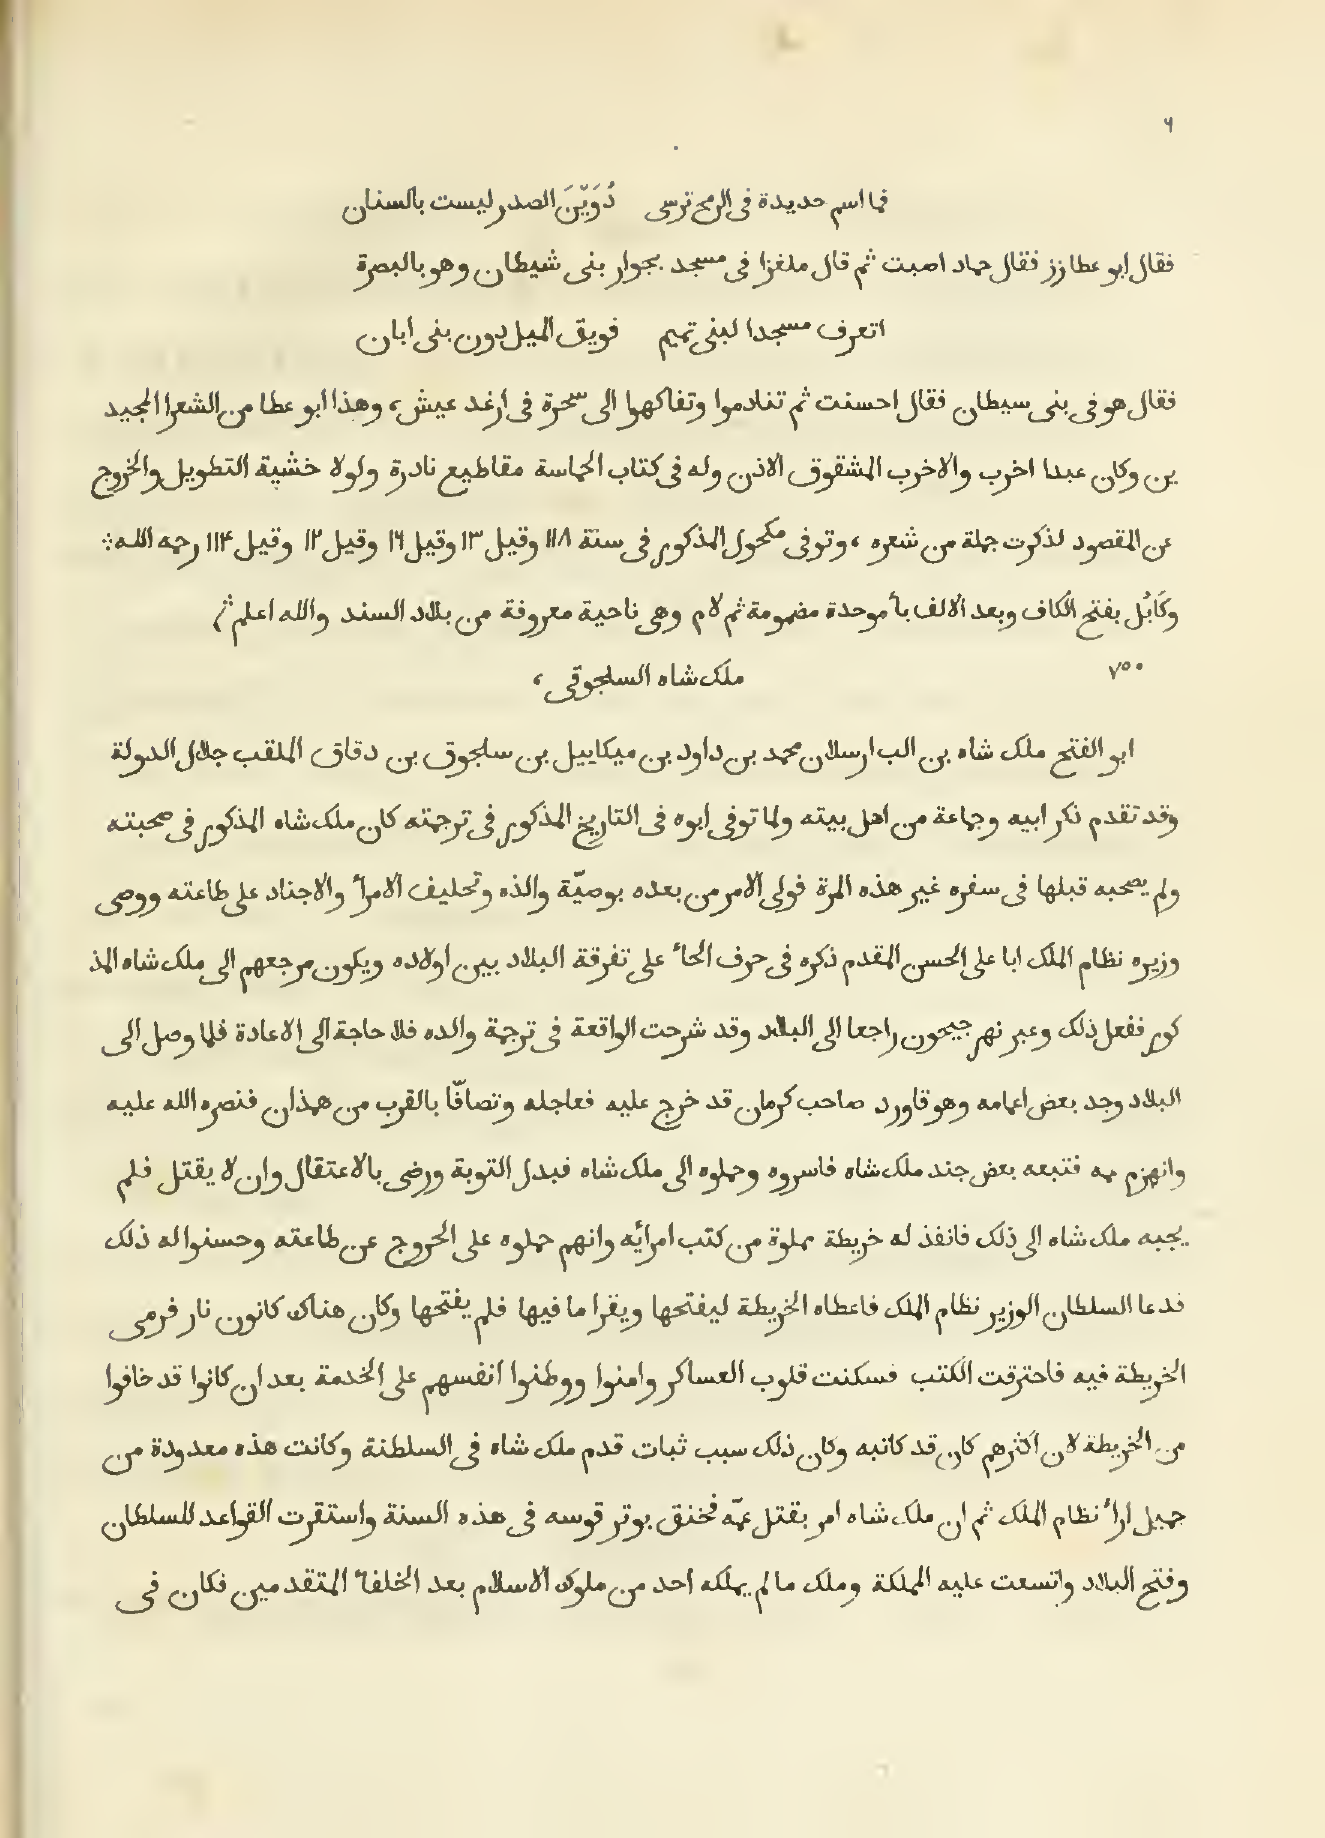 ٦
فما اسم حديدة فى الرمح ترسى دُوَيّنَ الصدر ليست بالسنان
فقال ابو عطا زز فقال حماد اصبت ثم قال ملغزا فى مسجد بجوار بنى شيطان وهو بالبصرة
اتعرف مسجدا لبنى تميم فويق الميل دون بنى ابان
فقال هو فى بنى سيطان فقال احسنت ثم تنادموا وتفاكهوا الى سحرة فى ارغد عيش، وهذا ابو عطا من الشعرا المجيد
ين وكان عبدا اخرب والاخرب المشقوق الاذن وله فى كتاب الحماسة مقاطيع نادرة ولولا خشية التطويل والخروج
عن المقصود لذكرت جملة من شعره، وتوفى مكحول المذكور فى سنة ١١٨ وقيل ١٣ وقيل ١٦ وقيل ١٢ وقيل ١١۴ رحمه الله ؞
وكَابُل بفتح الكاف وبعد الالف باً موحدة مضمومة ثم لام وهى ناحية معروفة من بلاد السند والله اعلم ثم
٧٥٠
ملك شاه السلجوقى،
ابو الفتح ملك شاه بن الب ارسلان محمد بن داود بن ميكاييل بن سلجوق بن دقاق الملقب جلال الدولة
وقد تقدم ذكر ابيه وجماعة من اهل بيته ولما توفى ابوه فى التاريخ المذكور فى ترجمته كان ملك شاه المذكور فى صحبته
ولم يصحبه قبلها فى سفره غير هذه المرة فولى الامر من بعده بوصيّة والذه وتحليف الامرأ والاجناد على طاعته ووصى
وزيره نظام الملك ابا على الحسن المقدم ذكره فى حرف الحأ على تفرقة البلاد بين اولاده ويكون مرجعهم الى ملك شاه المذ
كور ففعل ذلك وعبر نهر جيحون راجعا الى البلاد وقد شرحت الواقعة فى ترجمة والده فلا حاجة الى الاعادة فلما وصل الى
البلاد وجد بعض اعمامه وهو قاورد صاحب كرمان قد خرج عليه فعاجله وتصافّا بالقرب من همذان فنصره الله عليه
وانهزم عمه فتبعه بعض جند ملك شاه فاسروه وحملوه الى ملك شاه فبدل التوبة ورضى بالاعتقال وان لا يقتل فلم
يجبه ملك شاه الى ذلك فانفذ له خريطة مملوة من كتب امرأيه وانهم حملوه على الخروج عن طاعته وحسنوا له ذلك
فدعا السلطان الوزير نظام الملك فاعطاه الخريطة ليفتحها ويقرا ما فيها فلم يفتحها وكان هناك كانون نار فرمى
الخريطة فيه فاحترقت الكتب فسكنت قلوب العساكر وامنوا ووطنوا انفسهم على الخدمة بعد ان كانوا قد خافوا
من الخريطة لان اكثرهم كان قد كاتبه وكان ذلك سبب ثبات قدم ملك شاه فى السلطنة وكانت هذه معدودة من
جميل ارأ نظام الملك ثم ان ملك شاه امر بقتل عمّه فخنق بوتر قوسه فى هذه السنة واستقرت القواعد للسلطان
وفتح البلاد واتسعت عليه المملكة وملك ما لم يملكه احد من ملوك الاسلام بعد الخلفأ المتقدمين فكان فى